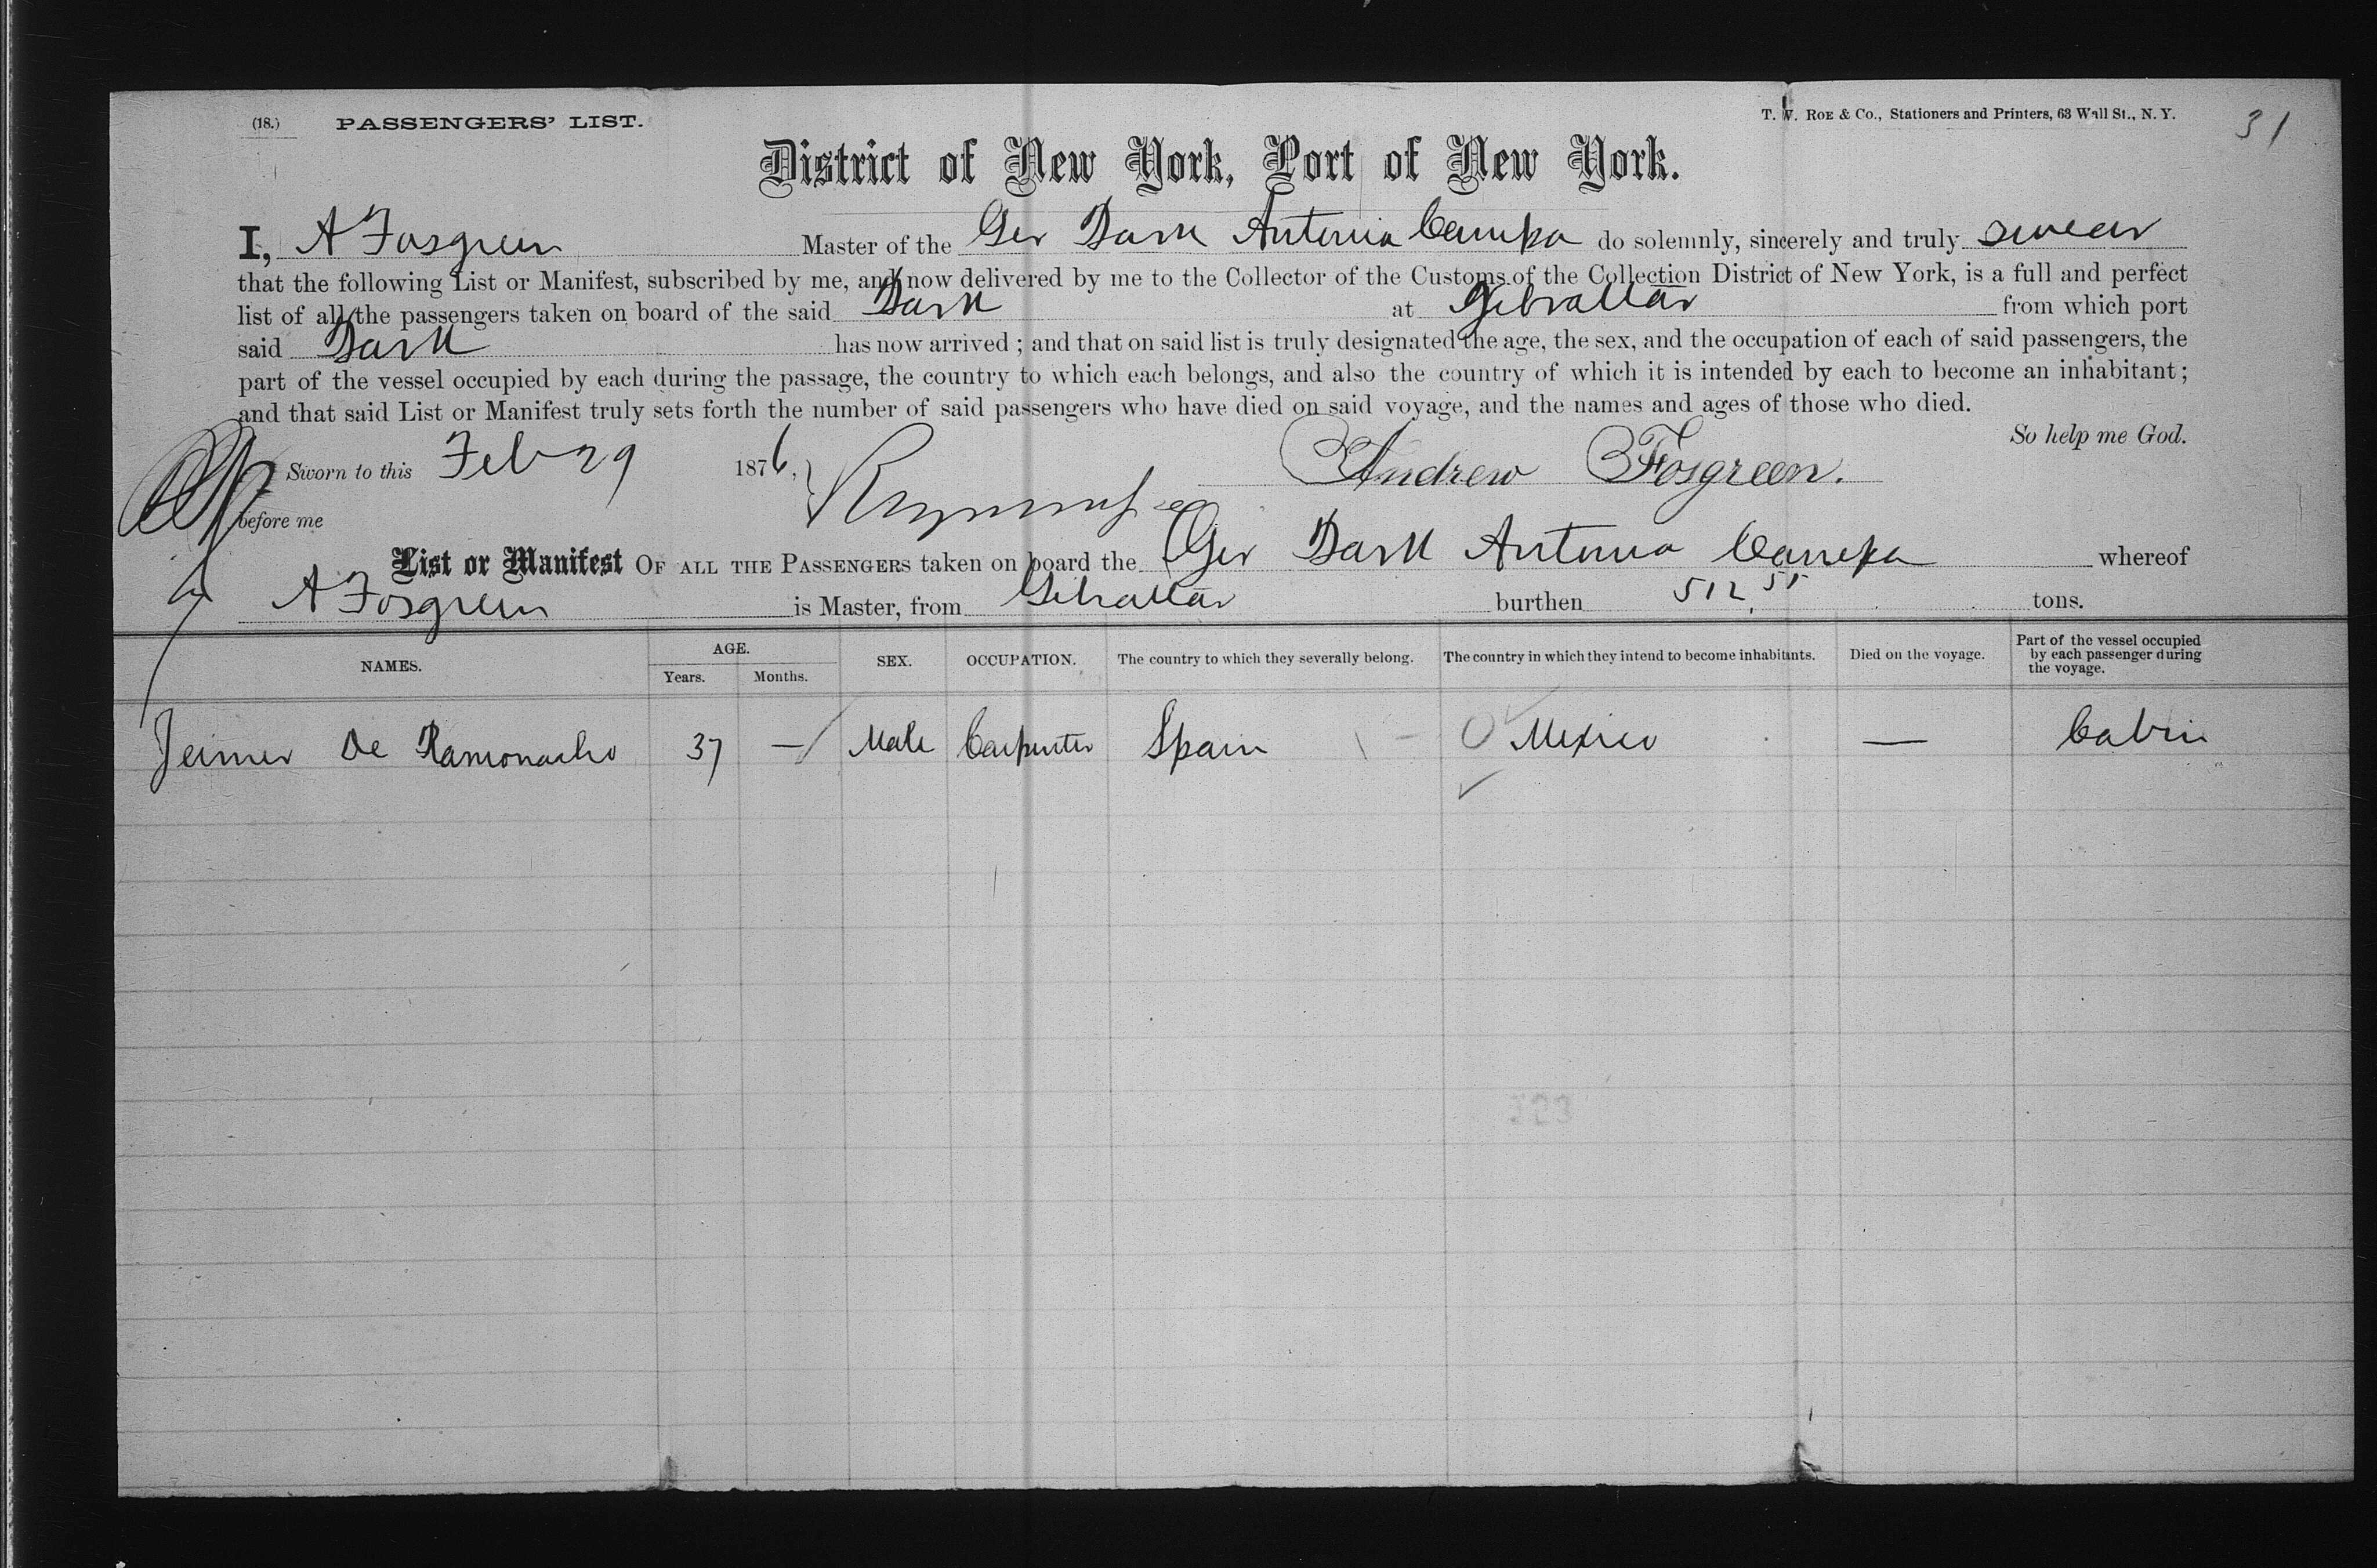 (18.) PASSENGERS' LIST. T. W. ROE & CO., Stationers and Printers, 63 Wall St., N. Y. 31
District of New York, Port of New York.
I, A Fosgreen Master of the Ger Bark Antonia Canepa do solemnly, sincerely and truly swear
that the following List or Manifest, subscribed by me, and now delivered by me to the Collector of the Customs of the Collection District of New York, is a full and perfect
list of all the passengers taken on board of the said Bark at Gibraltar from which port
said Bark has now arrived ; and that on said list is truly designated the age, the sex, and the occupation of each of said passengers, the
part of the vessel occupied by each during the passage, the country to which each belongs, and also the country of which it is intended by each to become an inhabitant ;
and that said List or Manifest truly sets forth the number of said passengers who have died on said voyage, and the names and ages of those who died.
So help me God.
Sworn to this Feb 29 1876, Andrew Fosgreen.
before me
List or Manifest OF ALL THE PASSENGERS taken on board the Ger Bark Antonia Canepa whereof
A Fosgreen is Master, from Gibraltar burthen 512.55 tons.
NAMES. AGE. Years. Months. SEX. OCCUPATION. The country to which they severally belong. The country in which they intend to become inhabitants. Died on the voyage. Part of the vessel occupied by each passenger during the voyage.
De 37 — Male Carpenter Spain Mexico — Cabin